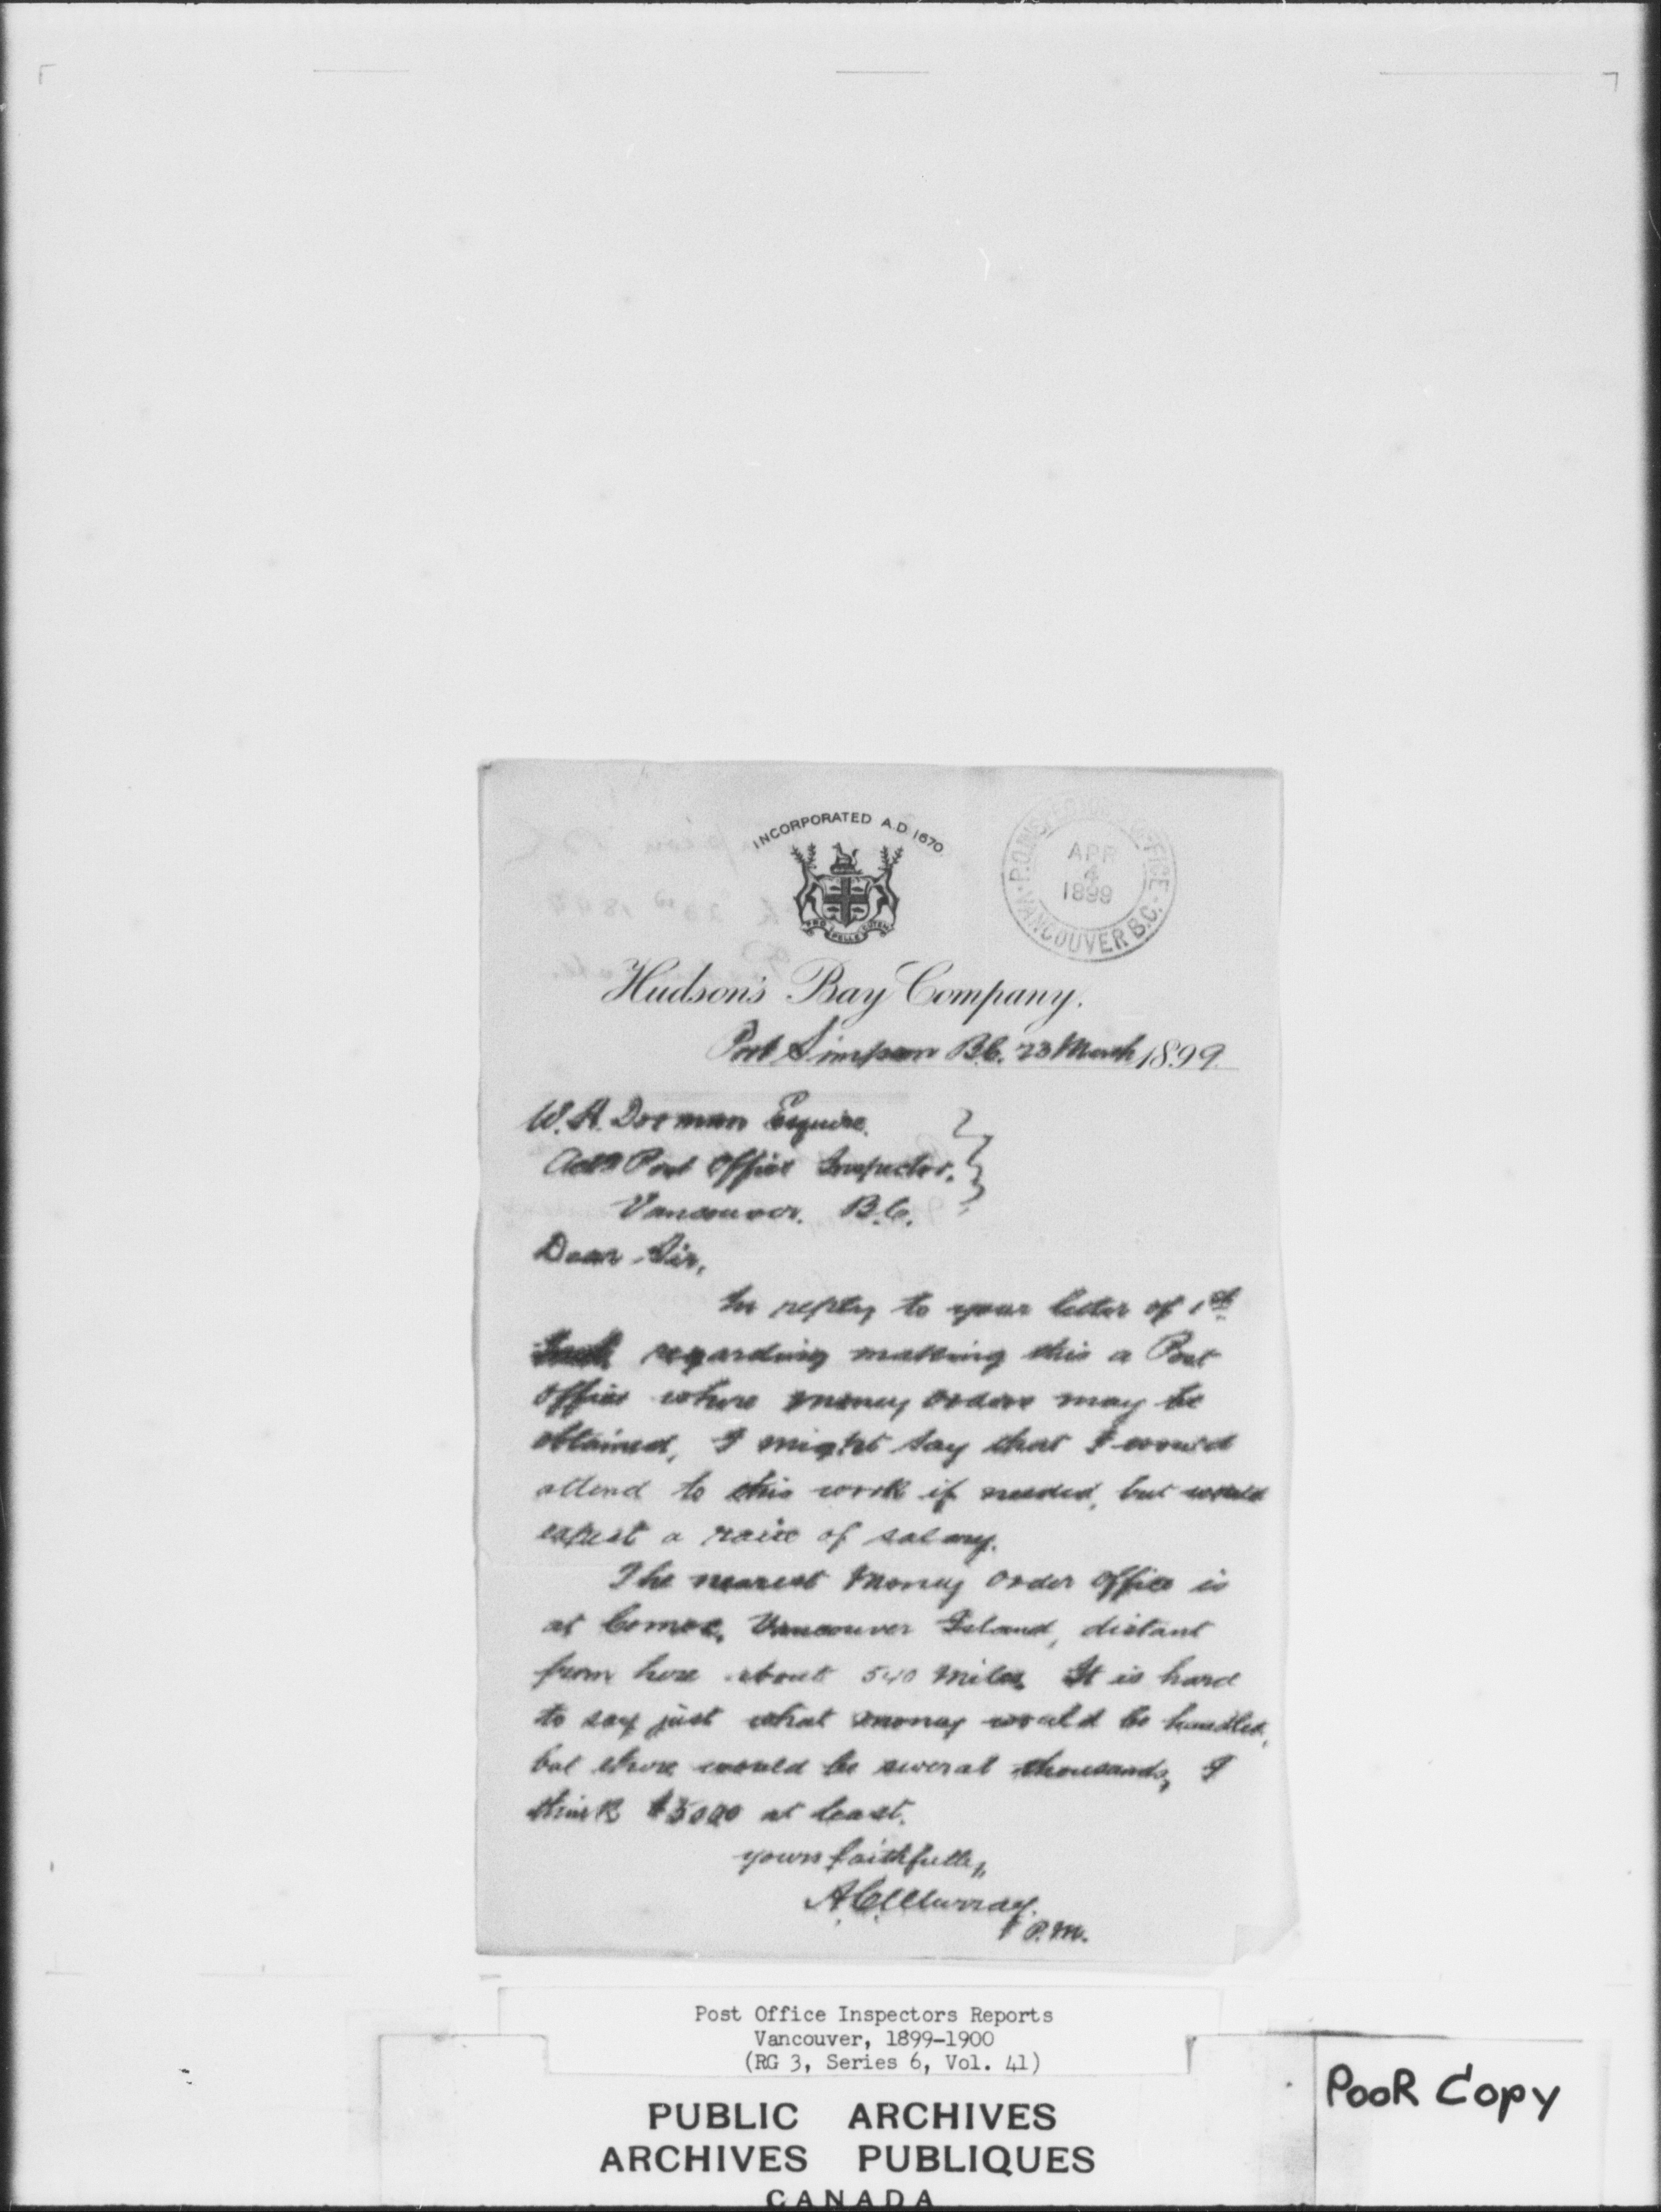 INCORPORATED A.D. 1670.
PRO PELLE CUTEM
P.O. INSPECTOR'S OFFICE
APR
4
1899
VANCOUVER B.C.
Hudson's Bay Company.
Port Simpson B.C. 23 March 1899.
W. H. Dorman Esquire.
Actg Post Office Inspector.
Vancouver. B.C.
Dear Sir,
In reply to your letter of 1st
regarding making this a Post
Office where money orders may be
obtained, I might say that I would
attend to this work if needed, but would
expect a raise of salary.
The nearest Money Order Office is
at Comox, Vancouver Island, distant
from here about 540 miles. It is hard
to say just what money would be handled,
but there would be several thousands, I
think $5000 at least.
yours faithfully,
A.C. Murray.
P.M.
Post Office Inspectors Reports
Vancouver, 1899-1900
(RG 3, Series 6, Vol. 41)
PooR Copy
PUBLIC ARCHIVES
ARCHIVES PUBLIQUES
CANADA